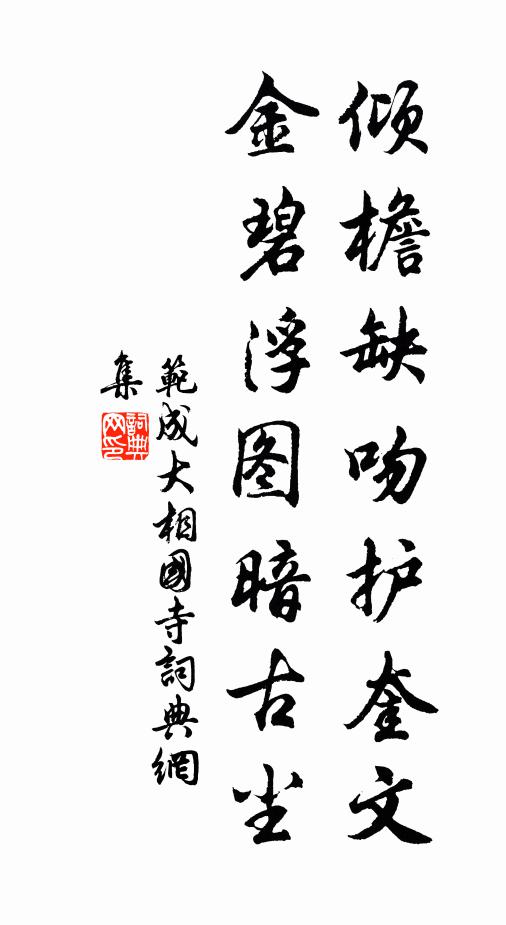 倾檐缺吻护奎文
金碧浮图暗古尘
範成大相國寺詞典網
集
詞典网印